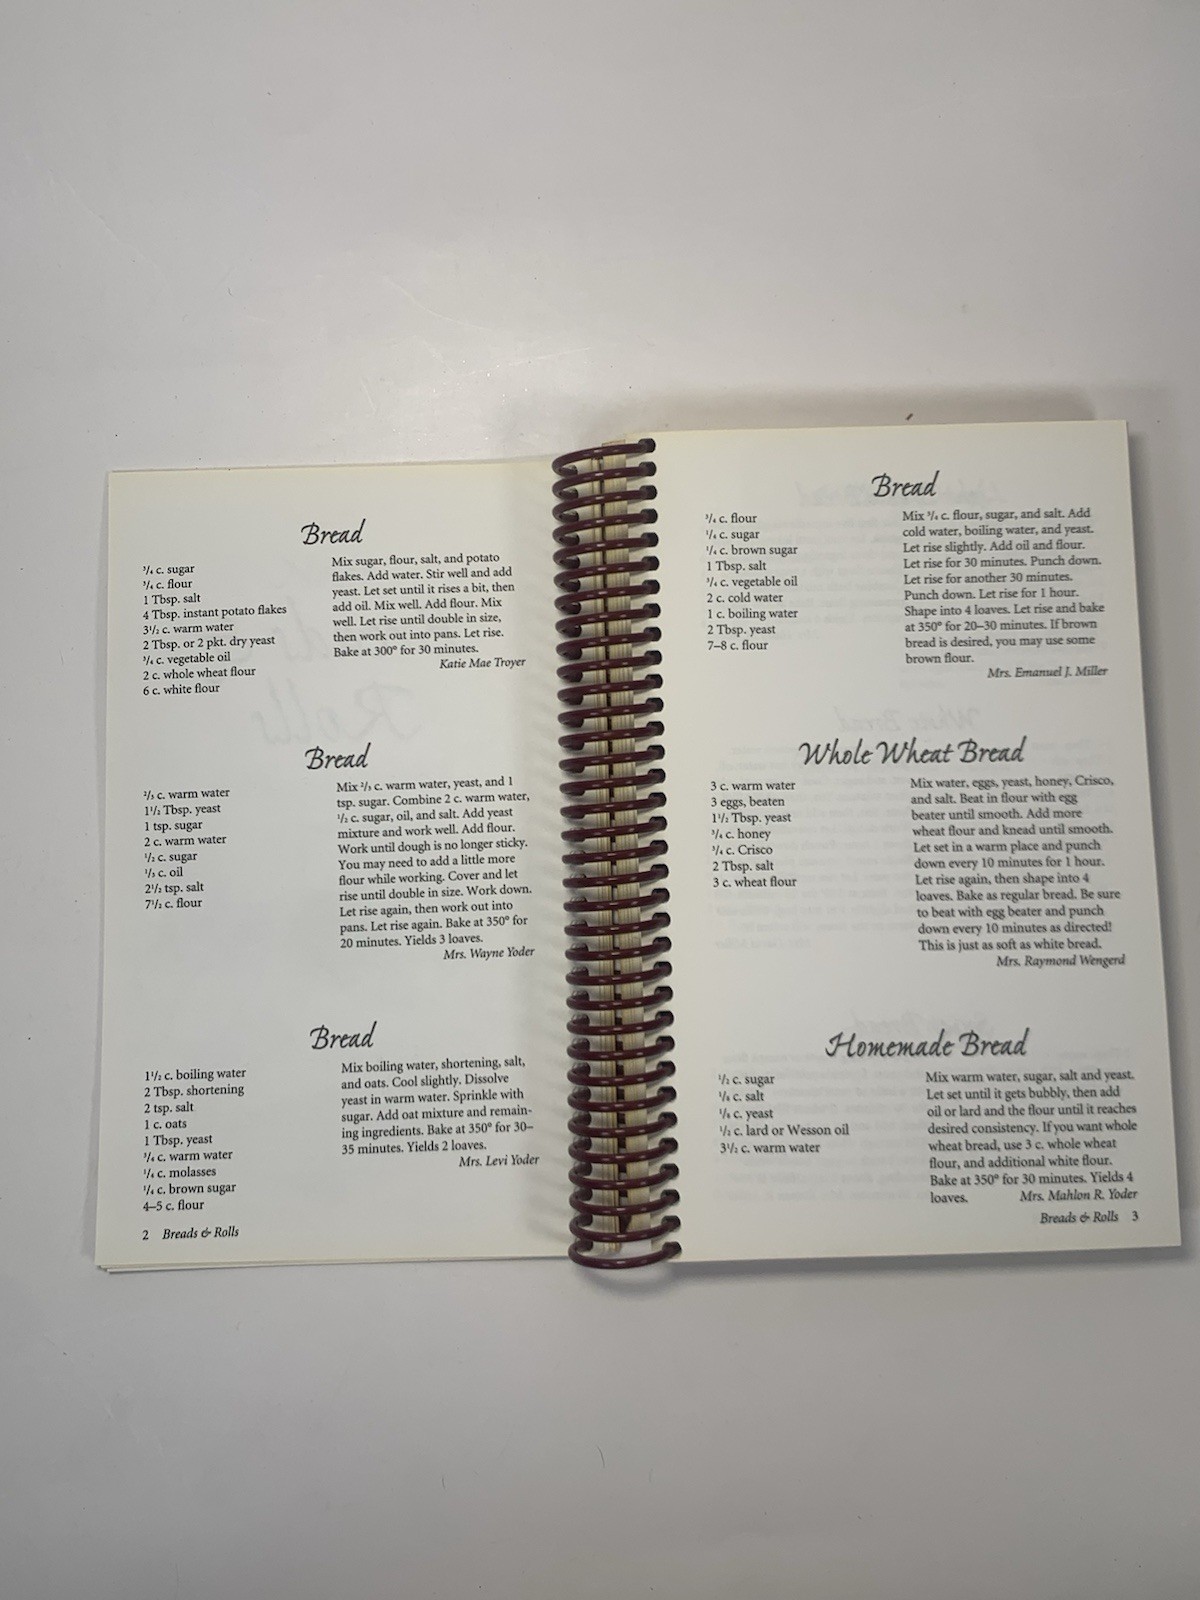 Bread
³/₄ c. sugar
³/₄ c. flour
1 Tbsp. salt
4 Tbsp. instant potato flakes
3¹/₂ c. warm water
2 Tbsp. or 2 pkt. dry yeast
³/₄ c. vegetable oil
2 c. whole wheat flour
6 c. white flour
Mix sugar, flour, salt, and potato
flakes. Add water. Stir well and add
yeast. Let set until it rises a bit, then
add oil. Mix well. Add flour. Mix
well. Let rise until double in size,
then work out into pans. Let rise.
Bake at 300° for 30 minutes.
Katie Mae Troyer
Bread
²/₃ c. warm water
1¹/₂ Tbsp. yeast
1 tsp. sugar
2 c. warm water
¹/₂ c. sugar
¹/₃ c. oil
2¹/₂ tsp. salt
7¹/₂ c. flour
Mix ²/₃ c. warm water, yeast, and 1
tsp. sugar. Combine 2 c. warm water,
¹/₂ c. sugar, oil, and salt. Add yeast
mixture and work well. Add flour.
Work until dough is no longer sticky.
You may need to add a little more
flour while working. Cover and let
rise until double in size. Work down.
Let rise again, then work out into
pans. Let rise again. Bake at 350° for
20 minutes. Yields 3 loaves.
Mrs. Wayne Yoder
Bread
1¹/₂ c. boiling water
2 Tbsp. shortening
2 tsp. salt
1 c. oats
1 Tbsp. yeast
³/₄ c. warm water
¹/₄ c. molasses
¹/₄ c. brown sugar
4–5 c. flour
Mix boiling water, shortening, salt,
and oats. Cool slightly. Dissolve
yeast in warm water. Sprinkle with
sugar. Add oat mixture and remain-
ing ingredients. Bake at 350° for 30–
35 minutes. Yields 2 loaves.
Mrs. Levi Yoder
2 Breads & Rolls
Bread
³/₄ c. flour
¹/₄ c. sugar
¹/₄ c. brown sugar
1 Tbsp. salt
³/₄ c. vegetable oil
2 c. cold water
1 c. boiling water
2 Tbsp. yeast
7–8 c. flour
Mix ³/₄ c. flour, sugar, and salt. Add
cold water, boiling water, and yeast.
Let rise slightly. Add oil and flour.
Let rise for 30 minutes. Punch down.
Let rise for another 30 minutes.
Punch down. Let rise for 1 hour.
Shape into 4 loaves. Let rise and bake
at 350° for 20–30 minutes. If brown
bread is desired, you may use some
brown flour.
Mrs. Emanuel J. Miller
Whole Wheat Bread
3 c. warm water
3 eggs, beaten
1¹/₂ Tbsp. yeast
³/₄ c. honey
³/₄ c. Crisco
2 Tbsp. salt
3 c. wheat flour
Mix water, eggs, yeast, honey, Crisco,
and salt. Beat in flour with egg
beater until smooth. Add more
wheat flour and knead until smooth.
Let set in a warm place and punch
down every 10 minutes for 1 hour.
Let rise again, then shape into 4
loaves. Bake as regular bread. Be sure
to beat with egg beater and punch
down every 10 minutes as directed!
This is just as soft as white bread.
Mrs. Raymond Wengerd
Homemade Bread
¹/₂ c. sugar
c. salt
c. yeast
¹/₂ c. lard or Wesson oil
3¹/₂ c. warm water
Mix warm water, sugar, salt and yeast.
Let set until it gets bubbly, then add
oil or lard and the flour until it reaches
desired consistency. If you want whole
wheat bread, use 3 c. whole wheat
flour, and additional white flour.
Bake at 350° for 30 minutes. Yields 4
loaves. Mrs. Mahlon R. Yoder
Breads & Rolls 3